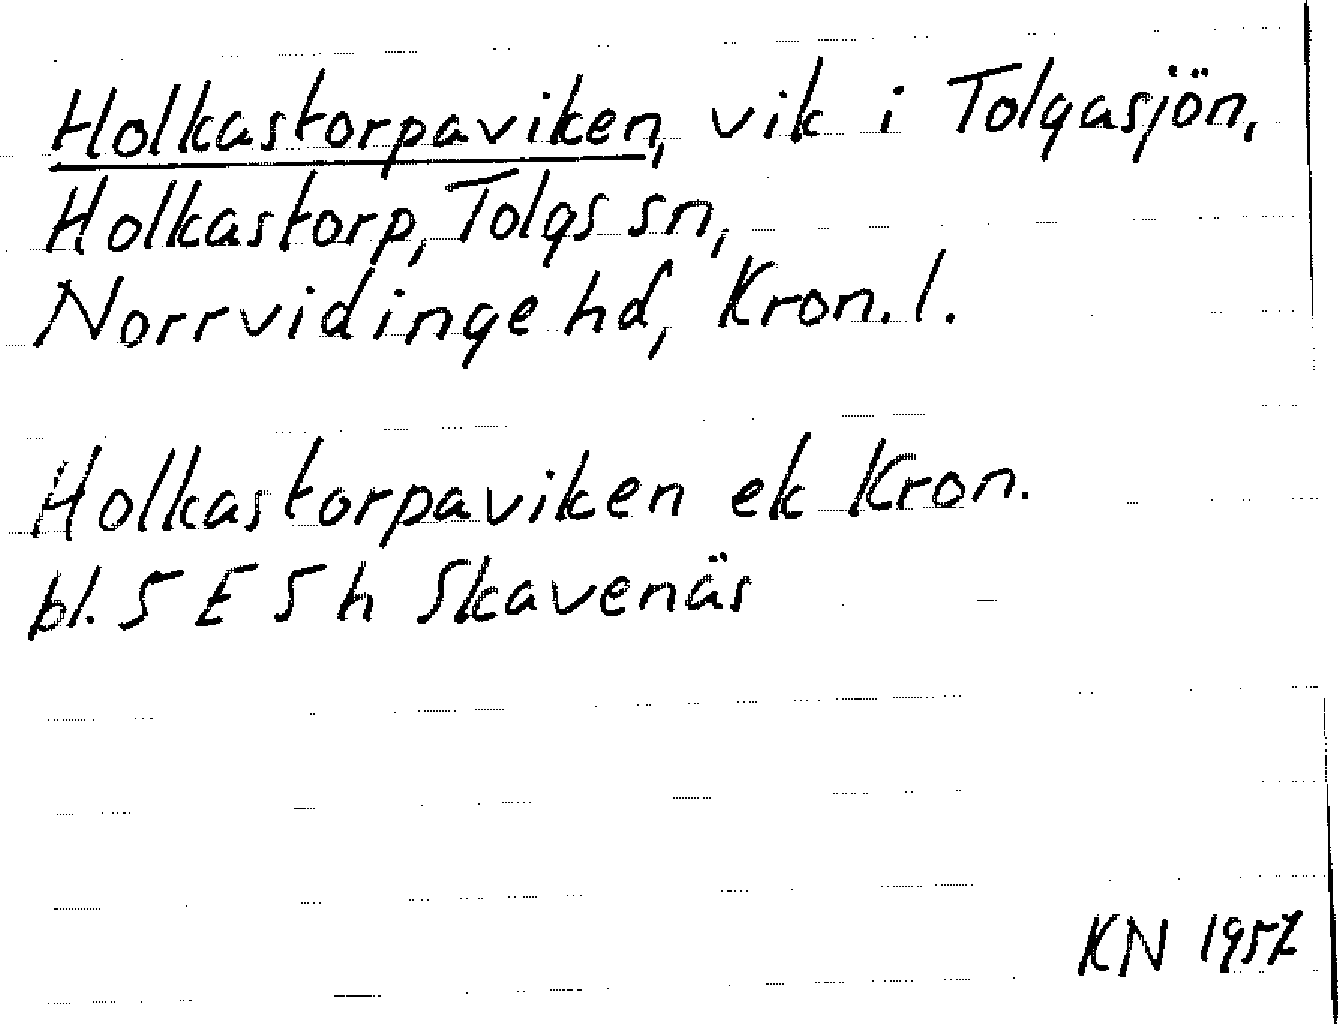 Holkastorpaviken, vik i Tolgasjön,
Holkastorp, Tolgs sn,
Norrvidinge hd, Kron. l.
Holkastorpaviken ek Kron.
bl. 5 E 5 h Skavenäs
KN 1957